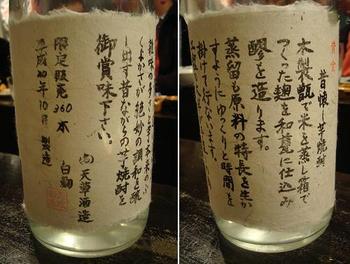 昔懐し芋焼酎
木製甑で米を蒸し箱で
つくった麹を和甕に仕込み
醪を造ります。
蒸留も原料の特長を生か
すようにゆっくりと時間を
掛けて行ないます。
絶妙の調和を醸
し出す昔ながらの芋焼酎を
御賞味下さい。
天草酒造
限定販売360本
白麹
平成20年10月製造